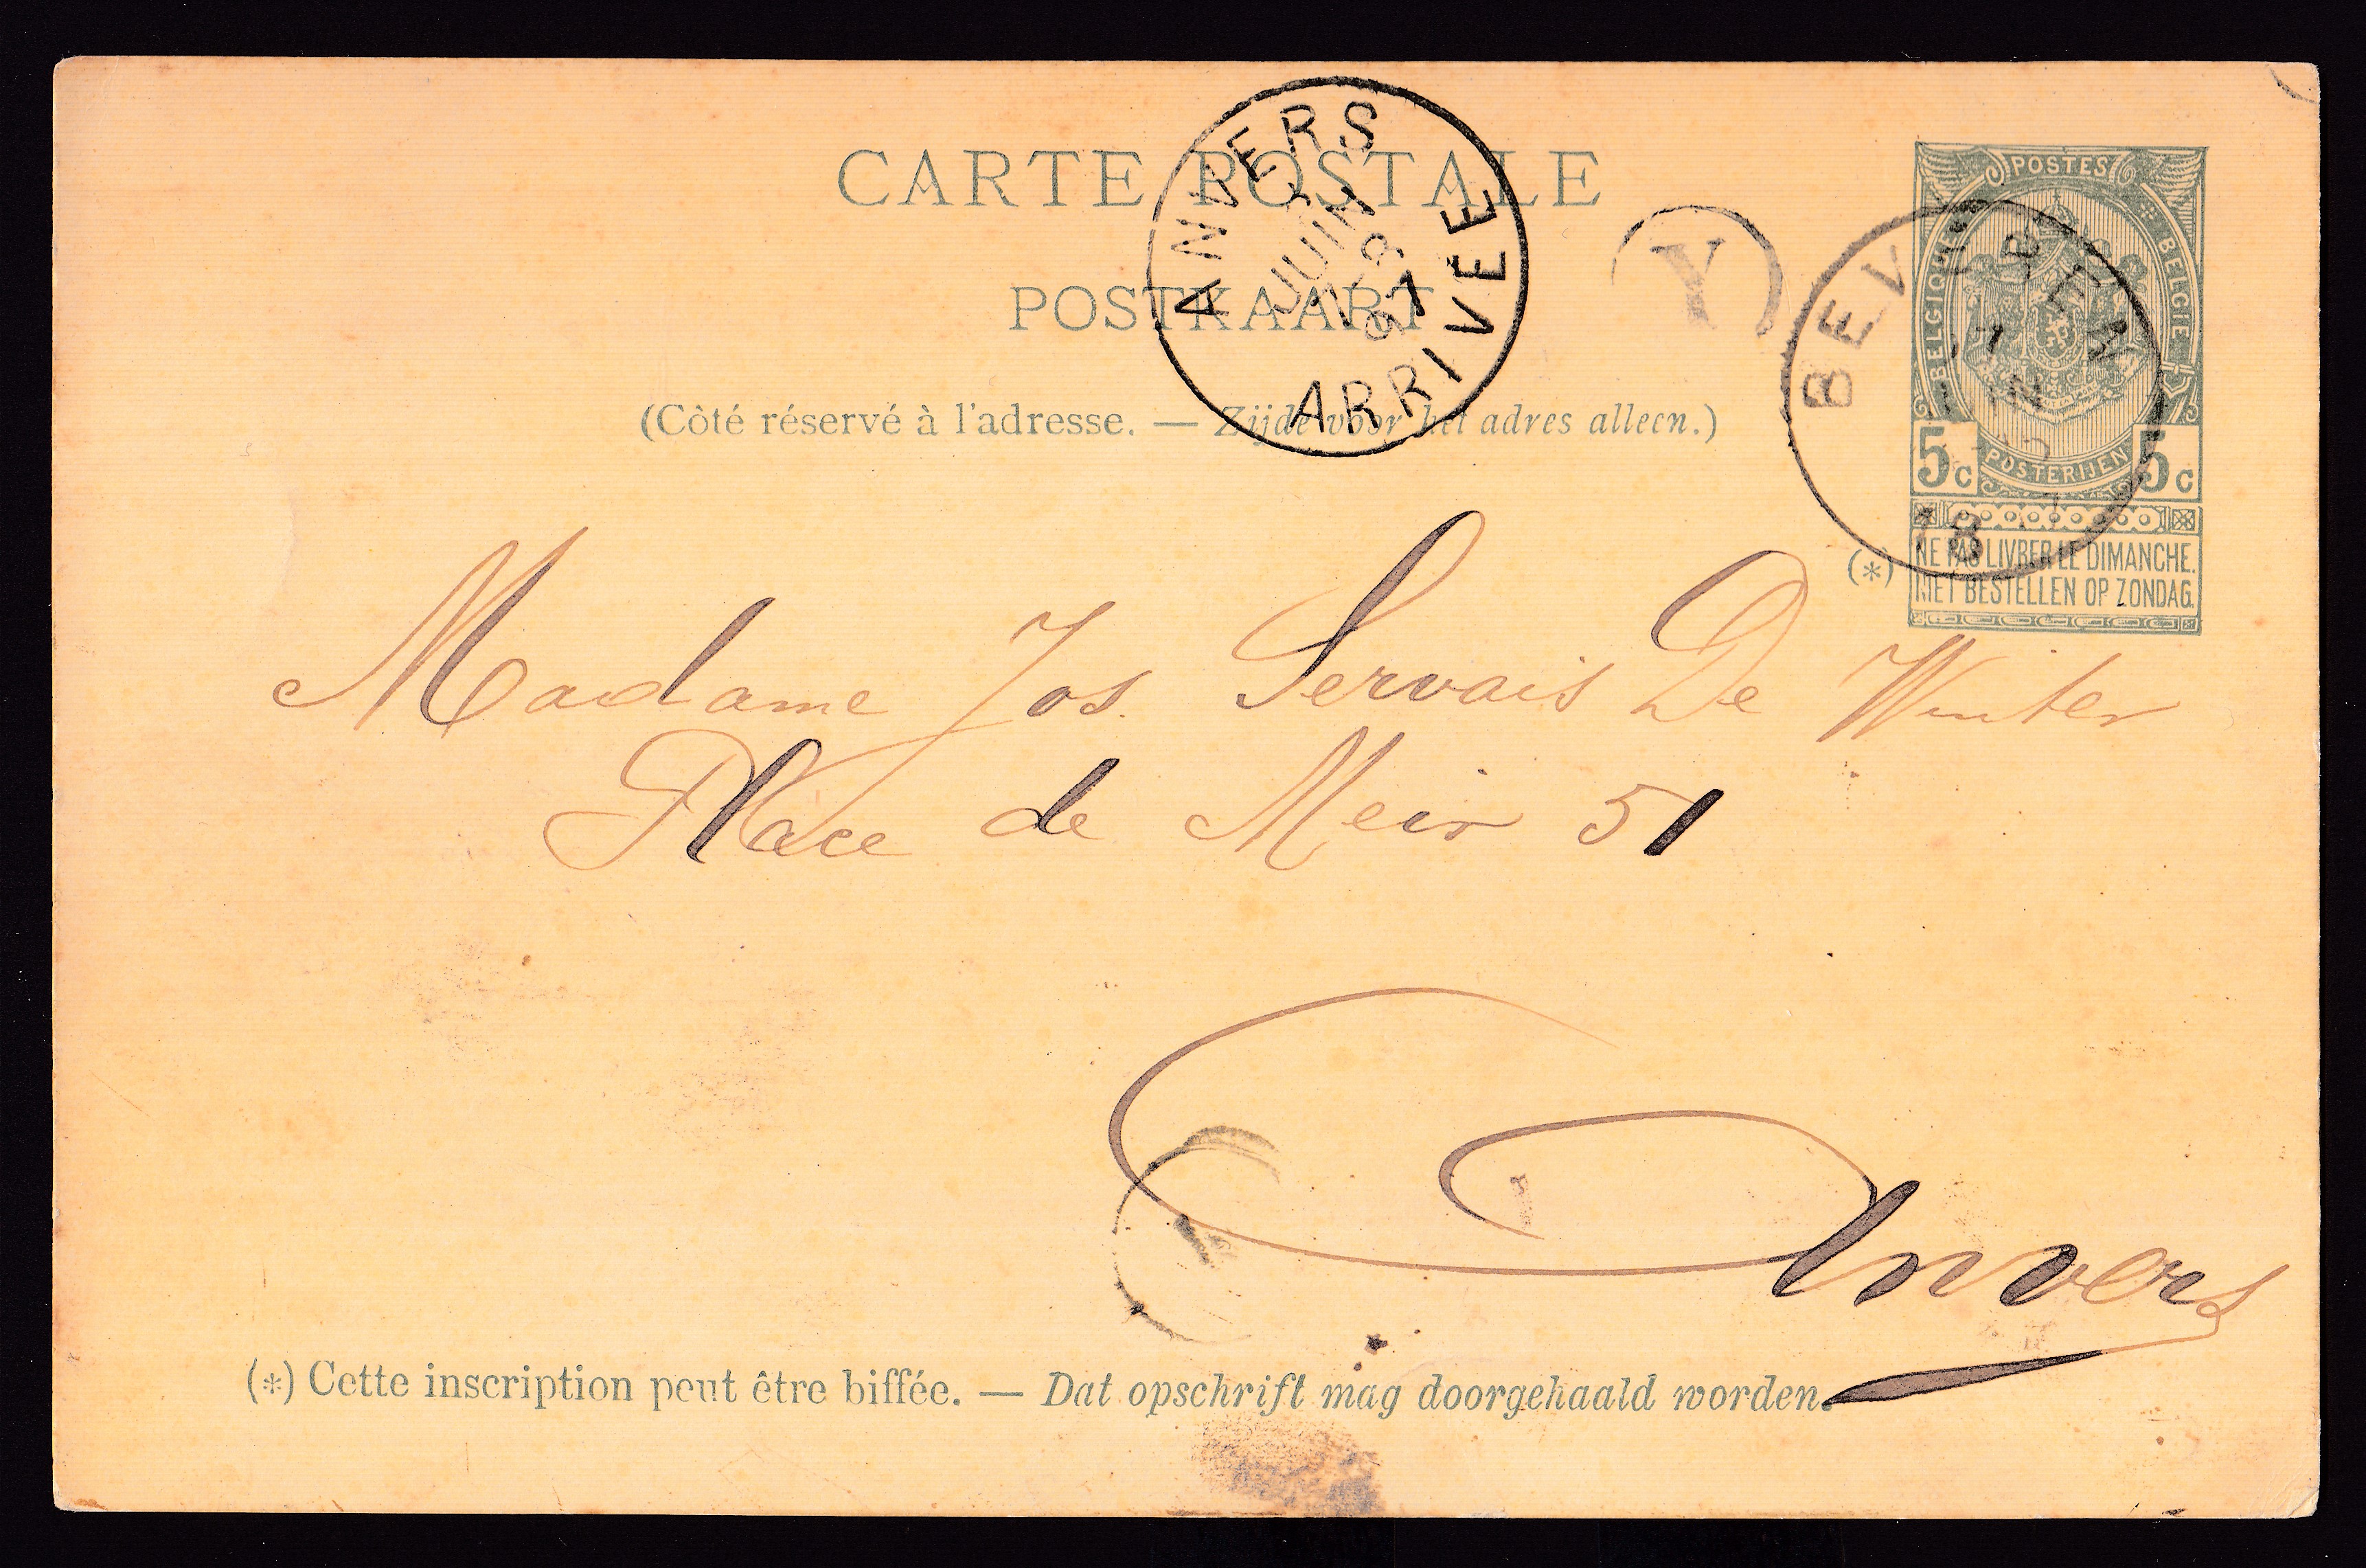 CARTE POSTALE
POSTKAART
(Côté réservé à l'adresse. — Zijde voor het adres alleen.)
ANVERS
JUIN
97
ARRIVÉE
Y
POSTES
BELGIQUE
BELGIË
POSTERIJEN
5c 5c
(*)
NE PAS LIVRER LE DIMANCHE.
NIET BESTELLEN OP ZONDAG.
Madame Jos. Servais De Winter
Place de Meir 51
Anvers
(*) Cette inscription peut être biffée. — Dat opschrift mag doorgehaald worden.